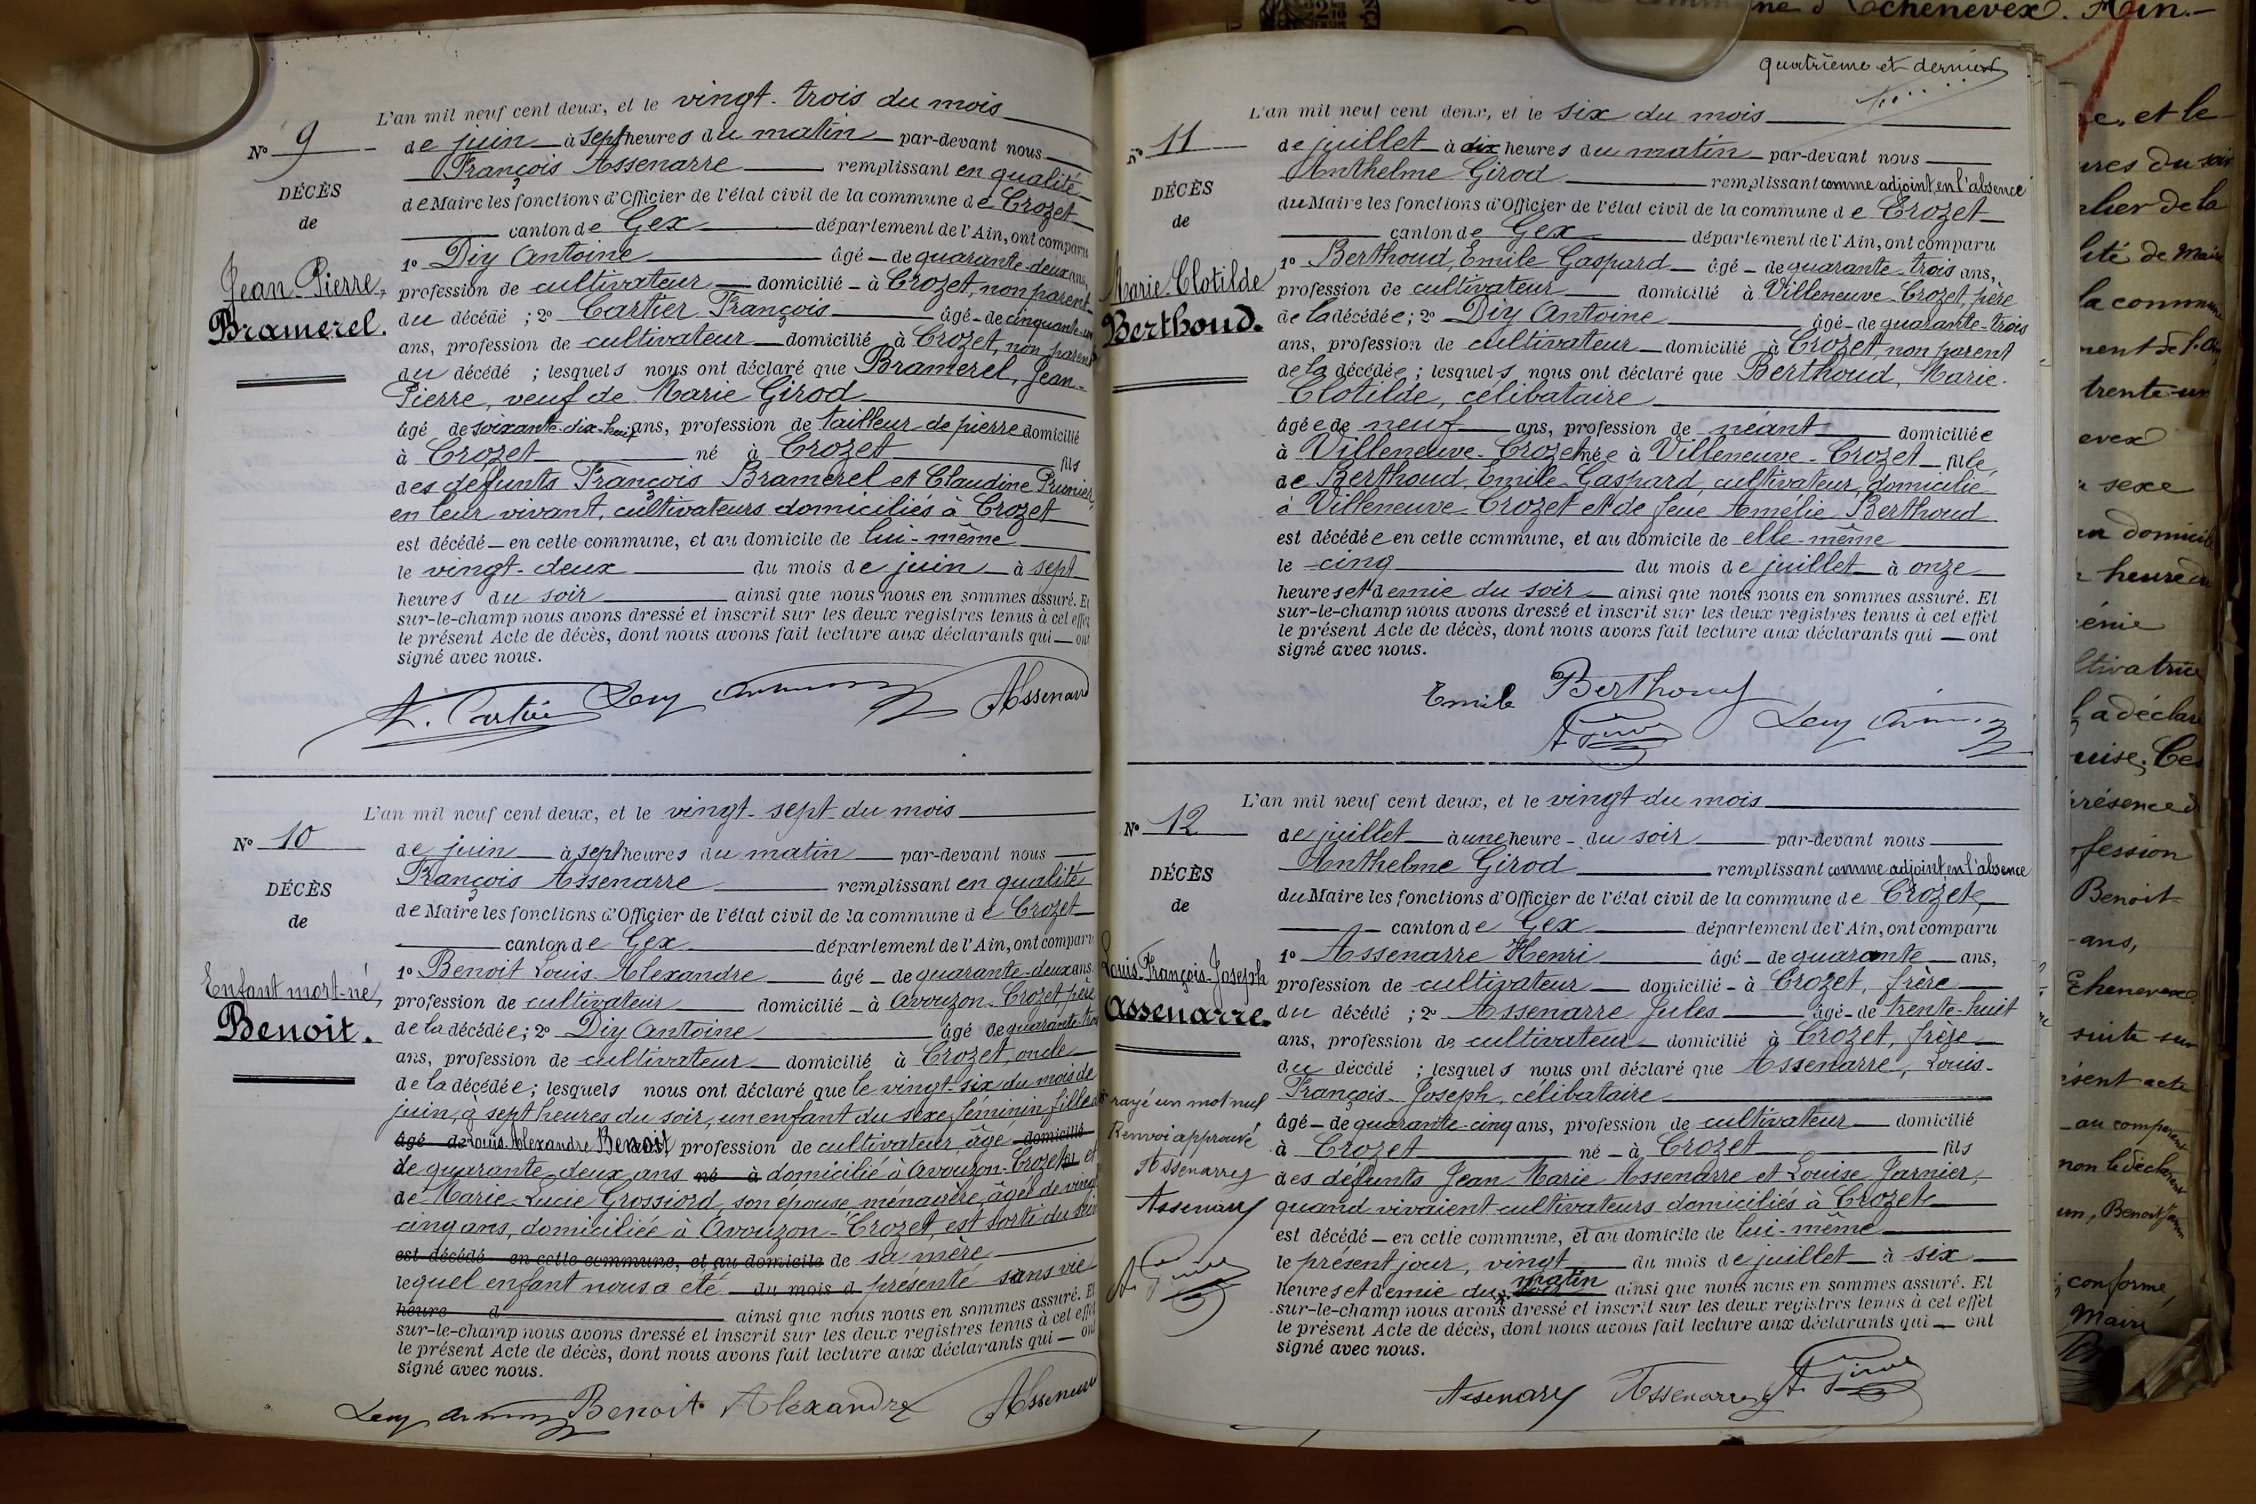 L'an mil neuf cent deux, et le vingt-trois du mois
N° 9
de juin à sept heures du matin par-devant nous
François Assenarre remplissant en qualité
DÉCÈS
de Maire les fonctions d'Officier de l'état civil de la commune de Crozet
de
canton de Gex département de l'Ain, ont comparu
1° Diy Antoine âgé de quarante-deux ans,
Jean-Pierre,
profession de cultivateur domicilié à Crozet, non parent
Bramerel.
du décédé ; 2° Cartier François âgé de cinquante-un
ans, profession de cultivateur domicilié à Crozet, non parent
du décédé ; lesquels nous ont déclaré que Bramerel, Jean-
Pierre, veuf de Marie Girod
âgé de soixante-dix-huit ans, profession de tailleur de pierre domicilié
à Crozet né à Crozet fils
des défunts François Bramerel et Claudine Prunier,
en leur vivant, cultivateurs domiciliés à Crozet
est décédé en cette commune, et au domicile de lui-même
le vingt-deux du mois de juin à sept
heures du soir ainsi que nous nous en sommes assuré. Et
sur-le-champ nous avons dressé et inscrit sur les deux registres tenus à cet effet
le présent Acte de décès, dont nous avons fait lecture aux déclarants qui ont
signé avec nous.
Assenarre
L'an mil neuf cent deux, et le vingt-sept du mois
N° 10
de juin à sept heures du matin par-devant nous
François Assenarre remplissant en qualité
DÉCÈS
de Maire les fonctions d'Officier de l'état civil de la commune de Crozet
de
canton de Gex département de l'Ain, ont comparu
1° Benoit Louis Alexandre âgé de quarante-deux ans
Enfant mort-né,
profession de cultivateur domicilié à Avouzon-Crozet, père
Benoit.
de la décédée ; 2° Diy Antoine âgé de quarante-trois
ans, profession de cultivateur domicilié à Crozet, oncle
de la décédée ; lesquels nous ont déclaré que le vingt-six du mois de
juin, à sept heures du soir, un enfant du sexe féminin, fille de
âgé de Louis Alexandre Benoit, profession de cultivateur, âgé domicilié
de quarante-deux ans né à domicilié à Avouzon-Crozet fils et
de Marie-Lucie Grossiord, son épouse, ménagère, âgée de vingt
cinq ans, domiciliée à Avouzon-Crozet, est sorti du sein
est décédé en cette commune, et au domicile de sa mère
lequel enfant nous a été du mois d présenté sans vie
heure d ainsi que nous nous en sommes assuré. Et
sur-le-champ nous avons dressé et inscrit sur les deux registres tenus à cet effet
le présent Acte de décès, dont nous avons fait lecture aux déclarants qui ont
signé avec nous.
Benoit Alexandre Assenarre
quatrième et dernier
L'an mil neuf cent deux, et le six du mois
N° 11
de juillet à dix heures du matin par-devant nous
Anthelme Girod remplissant comme adjoint, en l'absence
DÉCÈS
du Maire les fonctions d'Officier de l'état civil de la commune de Crozet
de
canton de Gex département de l'Ain, ont comparu
1° Berthoud, Emile Gaspard âgé de quarante-trois ans,
Marie-Clotilde
profession de cultivateur domicilié à Villeneuve-Crozet, père
Berthoud.
de la décédée ; 2° Diy Antoine âgé de quarante-trois
ans, profession de cultivateur domicilié à Crozet, non parent
de la décédée ; lesquels nous ont déclaré que Berthoud, Marie-
Clotilde, célibataire
âgée de neuf ans, profession de néant domiciliée
à Villeneuve-Crozet née à Villeneuve-Crozet fille
de Berthoud, Emile-Gaspard, cultivateur, domicilié
à Villeneuve-Crozet et de feue Amélie Berthoud
est décédée en cette commune, et au domicile de elle-même
le cinq du mois de juillet à onze
heures et demie du soir ainsi que nous nous en sommes assuré. Et
sur-le-champ nous avons dressé et inscrit sur les deux registres tenus à cet effet
le présent Acte de décès, dont nous avons fait lecture aux déclarants qui ont
signé avec nous.
Emile Berthoud
L'an mil neuf cent deux, et le vingt du mois
N° 12
de juillet à une heure du soir par-devant nous
Anthelme Girod remplissant comme adjoint, en l'absence
DÉCÈS
du Maire les fonctions d'Officier de l'état civil de la commune de Crozet
de
canton de Gex département de l'Ain, ont comparu
1° Assenarre Henri âgé de quarante ans,
Louis-François-Joseph
profession de cultivateur domicilié à Crozet, frère
Assenarre.
du décédé ; 2° Assenarre Jules âgé de trente-huit
ans, profession de cultivateur domicilié à Crozet, frère
du décédé ; lesquels nous ont déclaré que Assenarre, Louis-
François-Joseph, célibataire
rayé un mot nul
âgé de quarante-cinq ans, profession de cultivateur domicilié
Renvoi approuvé
à Crozet né à Crozet fils
Assenarre
des défunts Jean Marie Assenarre et Louise Jarnier,
Assenarre
quand vivaient cultivateurs domiciliés à Crozet
est décédé en cette commune, et au domicile de lui-même
le présent jour, vingt du mois de juillet à six
matin
heures et demie du soir ainsi que nous nous en sommes assuré. Et
sur-le-champ nous avons dressé et inscrit sur les deux registres tenus à cet effet
le présent Acte de décès, dont nous avons fait lecture aux déclarants qui ont
signé avec nous.
Assenarre Assenarre
Echenevex. Ain.
et le
de la
la commune
trente-un
sexe
domicile
heure du
présence d
Benoit
ans,
Echenevex
suite sur
au comparant
conforme,
Maire